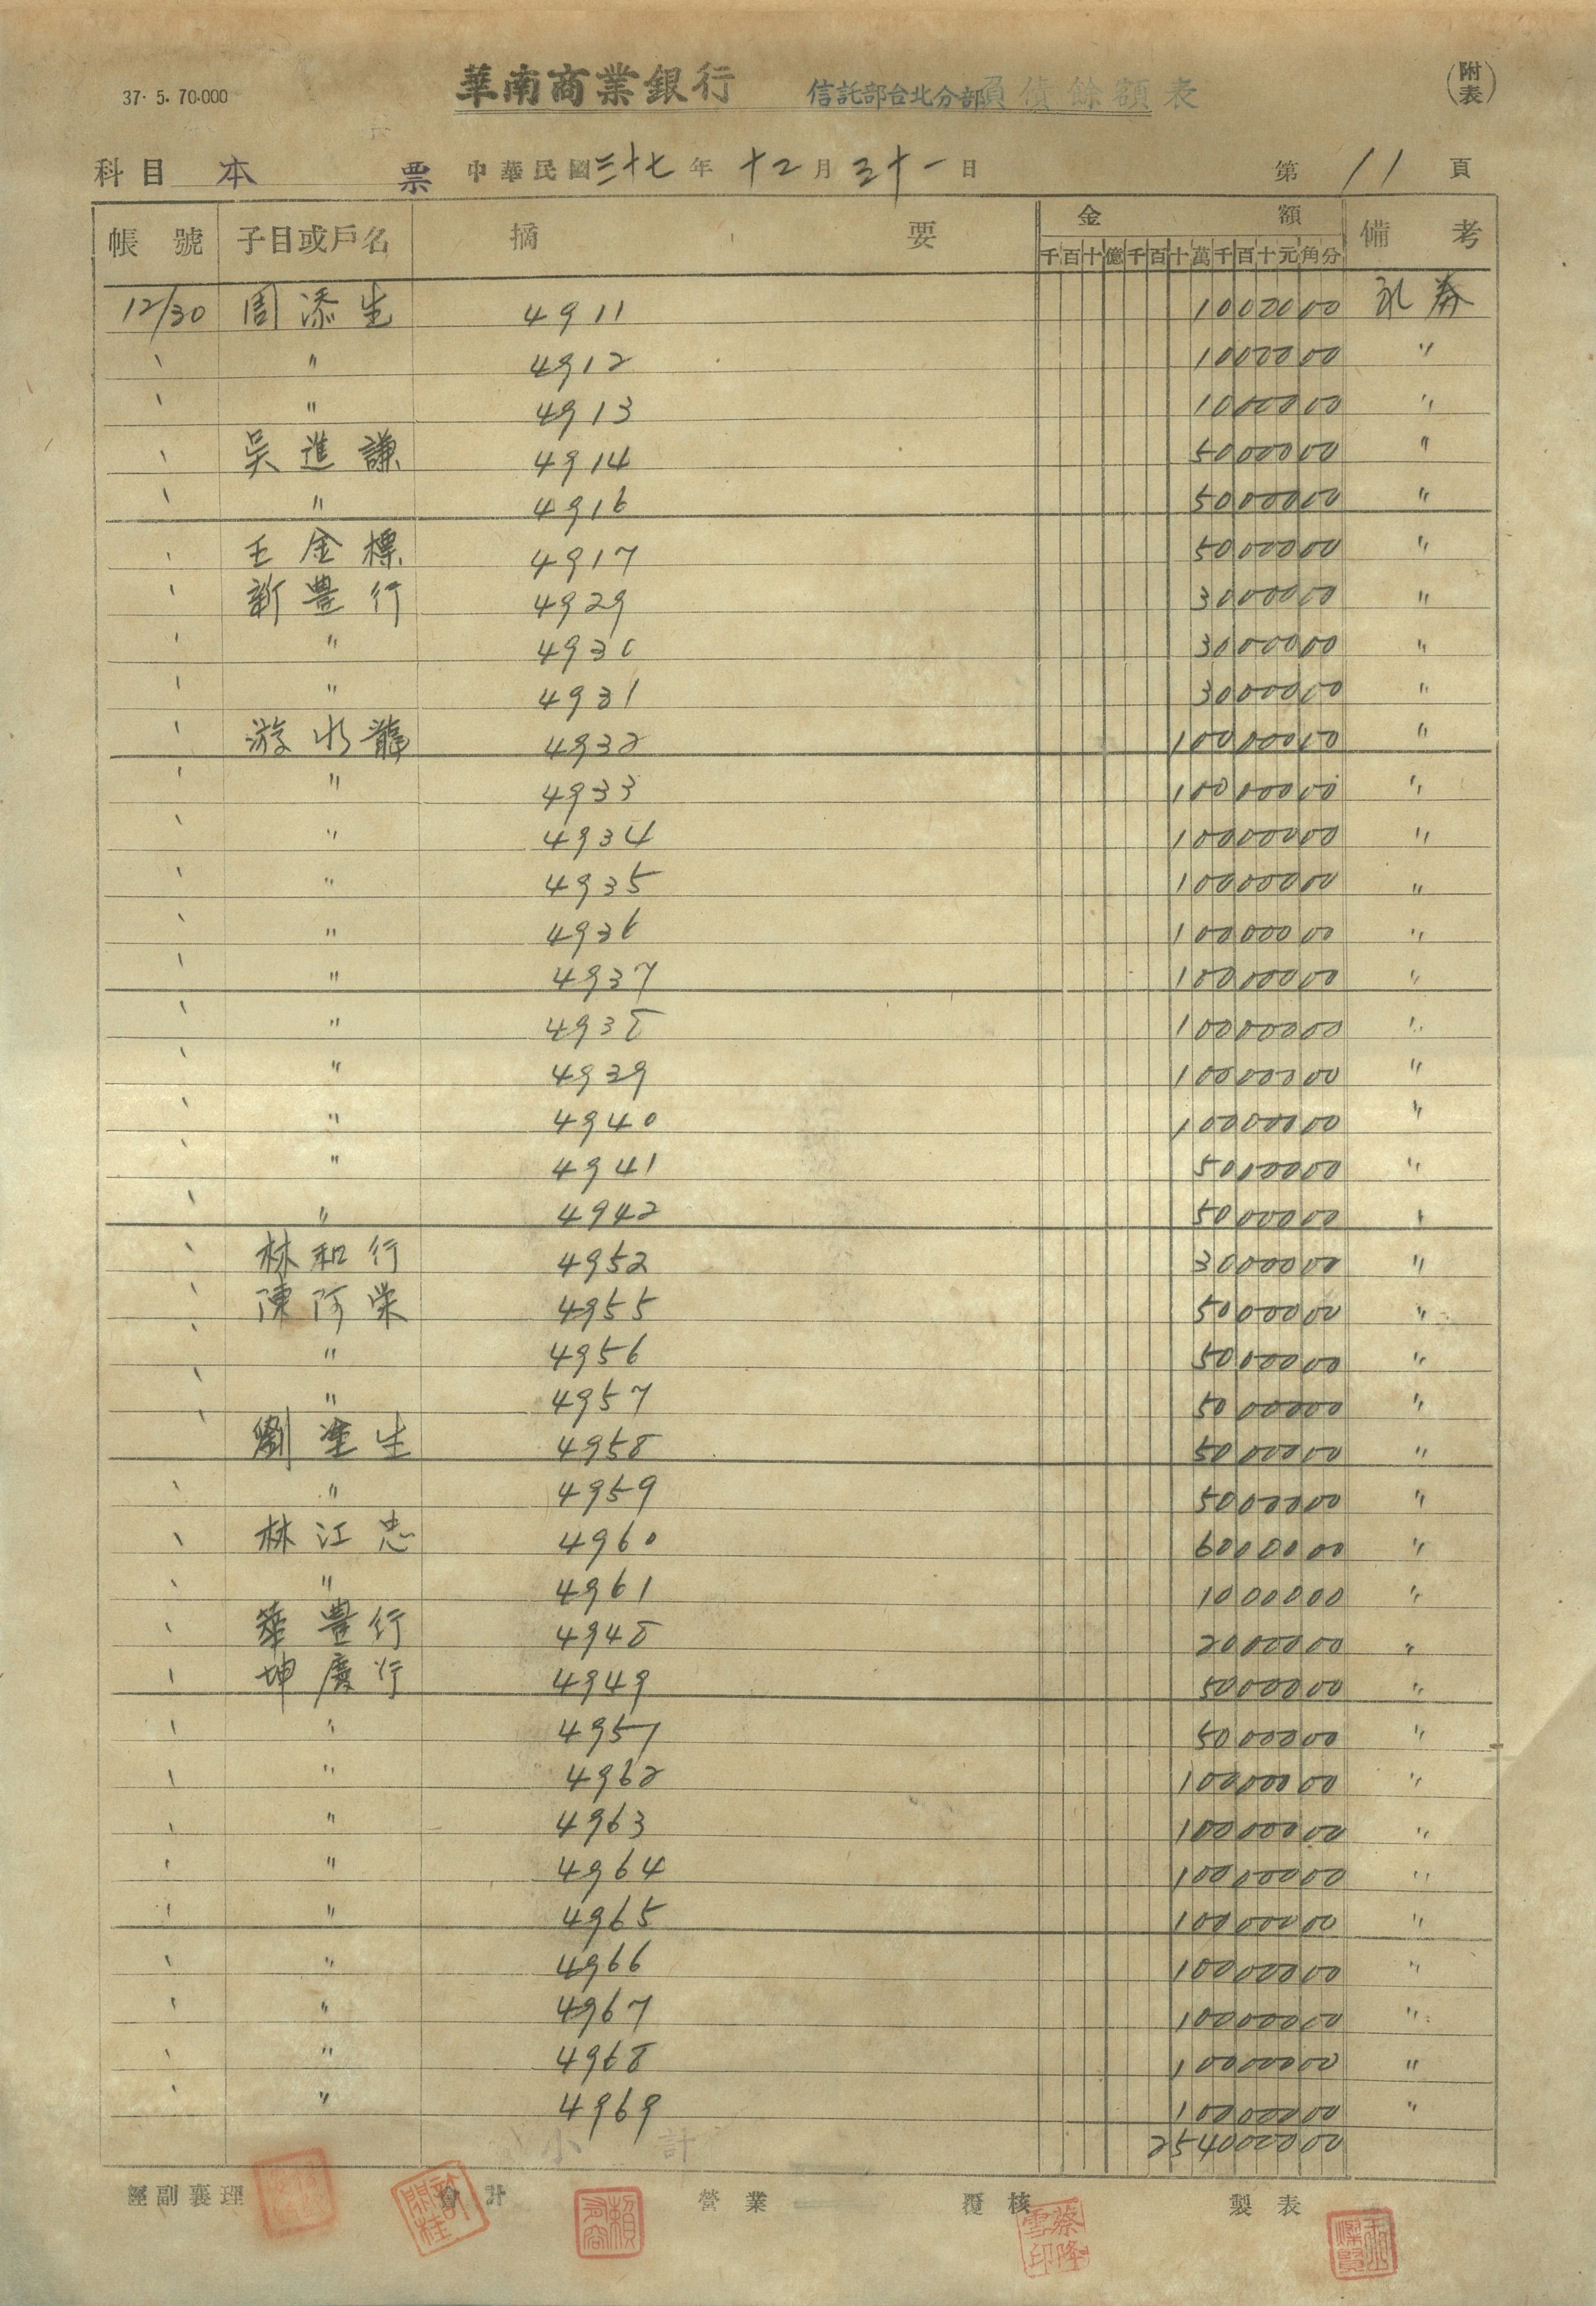 37. 5. 70.000
華南商業銀行 信託部台北分部負債餘額表 (附表)
科目 本票 中華民國三十七年十二月三十一日 第11頁
帳號 子目或戶名 摘要 金額 備考
千百十億千百十萬千百十元角分
12/30 周添生 4911 1000000 礼券
〃 〃 4912 1000000 〃
〃 〃 4913 1000000 〃
〃 吳進謙 4914 5000000 〃
〃 〃 4916 5000000 〃
〃 王金標 4917 5000000 〃
〃 新豊行 4929 3000000 〃
〃 〃 4930 3000000 〃
〃 〃 4931 3000000 〃
〃 游水龍 4932 10000000 〃
〃 〃 4933 10000000 〃
〃 〃 4934 10000000 〃
〃 〃 4935 10000000 〃
〃 〃 4936 10000000 〃
〃 〃 4937 10000000 〃
〃 〃 4938 10000000 〃
〃 〃 4939 10000000 〃
〃 〃 4940 10000000 〃
〃 〃 4941 5000000 〃
〃 〃 4942 5000000 〃
〃 林和行 4952 3000000 〃
〃 陳阿栄 4955 5000000 〃
〃 〃 4956 5000000 〃
〃 〃 4957 5000000 〃
〃 劉塗生 4958 5000000 〃
〃 〃 4959 5000000 〃
〃 林江忠 4960 6000000 〃
〃 〃 4961 1000000 〃
〃 華豊行 4948 2000000 〃
〃 坤廣行 4949 5000000 〃
〃 〃 4951 5000000 〃
〃 〃 4962 10000000 〃
〃 〃 4963 10000000 〃
〃 〃 4964 10000000 〃
〃 〃 4965 10000000 〃
〃 〃 4966 10000000 〃
〃 〃 4967 10000000 〃
〃 〃 4968 10000000 〃
〃 〃 4969 10000000 〃
小計 254000000
經副襄理 會計 營業 覆核 製表